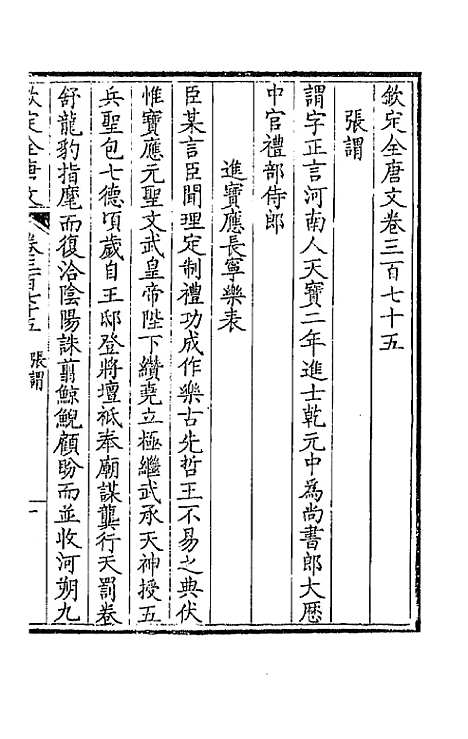 欽定全唐文卷三百七十五
張謂
謂字正言河南人天寶二年進士乾元中為尚書郎大厯
中官禮部侍郎
進寶應長寧樂表
臣某言臣聞理定制禮功成作樂古先哲王不易之典伏
惟寶應元聖文武皇帝陛下纘堯立極繼武承天神授五
兵聖包七德頃歲自王邸登將壇祗奉廟謀龔行天罰卷
舒龍豹指麾而復洽陰陽誅翦鯨鯢顧盼而並收河朔九
欽定全唐文
卷三百七十五
張謂
一